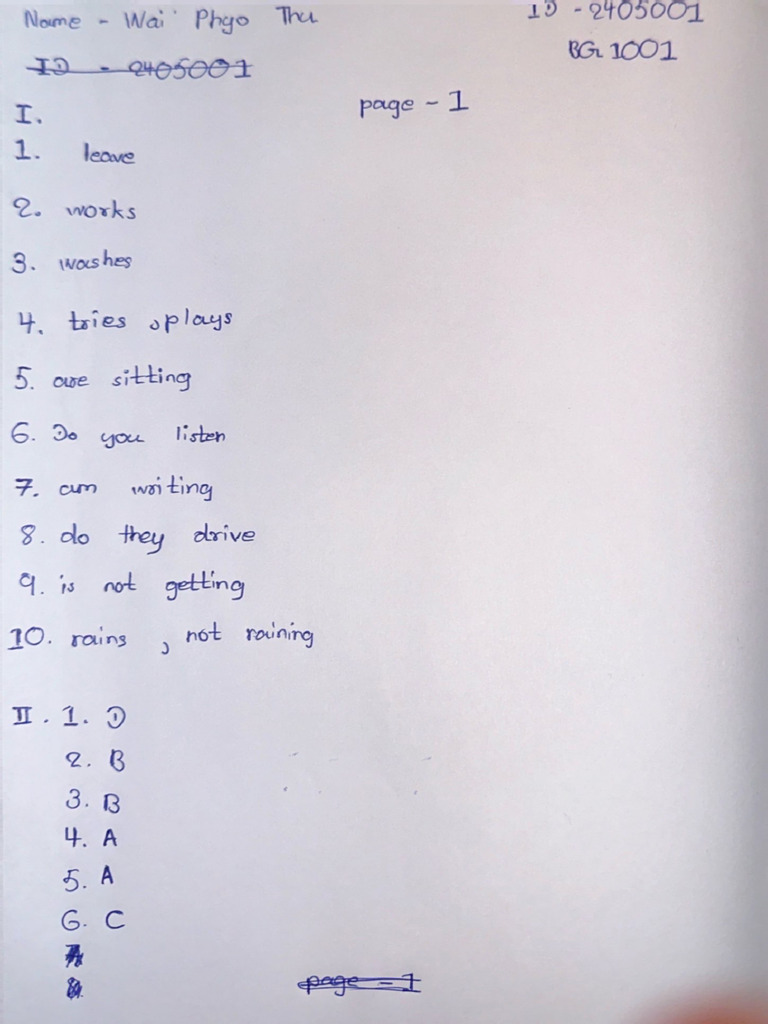 Name - Wai Phyo Thu
ID - 2405001
ID - 2405001
BGR 1001
page - 1
I.
1. leave
2. works
3. washes
4. tries , plays
5. are sitting
6. Do you listen
7. am writing
8. do they drive
9. is not getting
10. rains , not raining
II. 1. D
2. B
3. B
4. A
5. A
6. C
page - 1